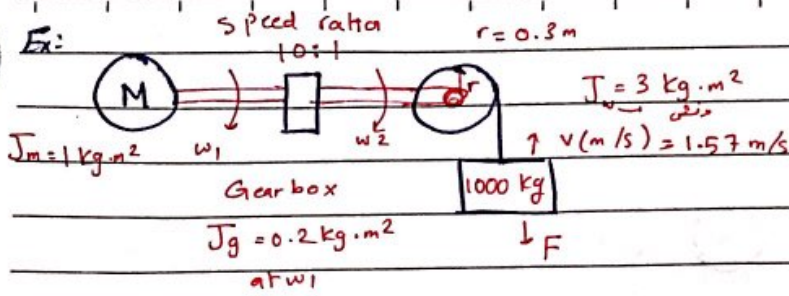 Ex:
speed ratio
10:1
r = 0.3 m
M
r
J = 3 kg.m²
Jm = 1 kg.m²
ω1
ω2
v(m/s) = 1.57 m/s
Gear box
1000 kg
Jg = 0.2 kg.m²
↓ F
at ω1